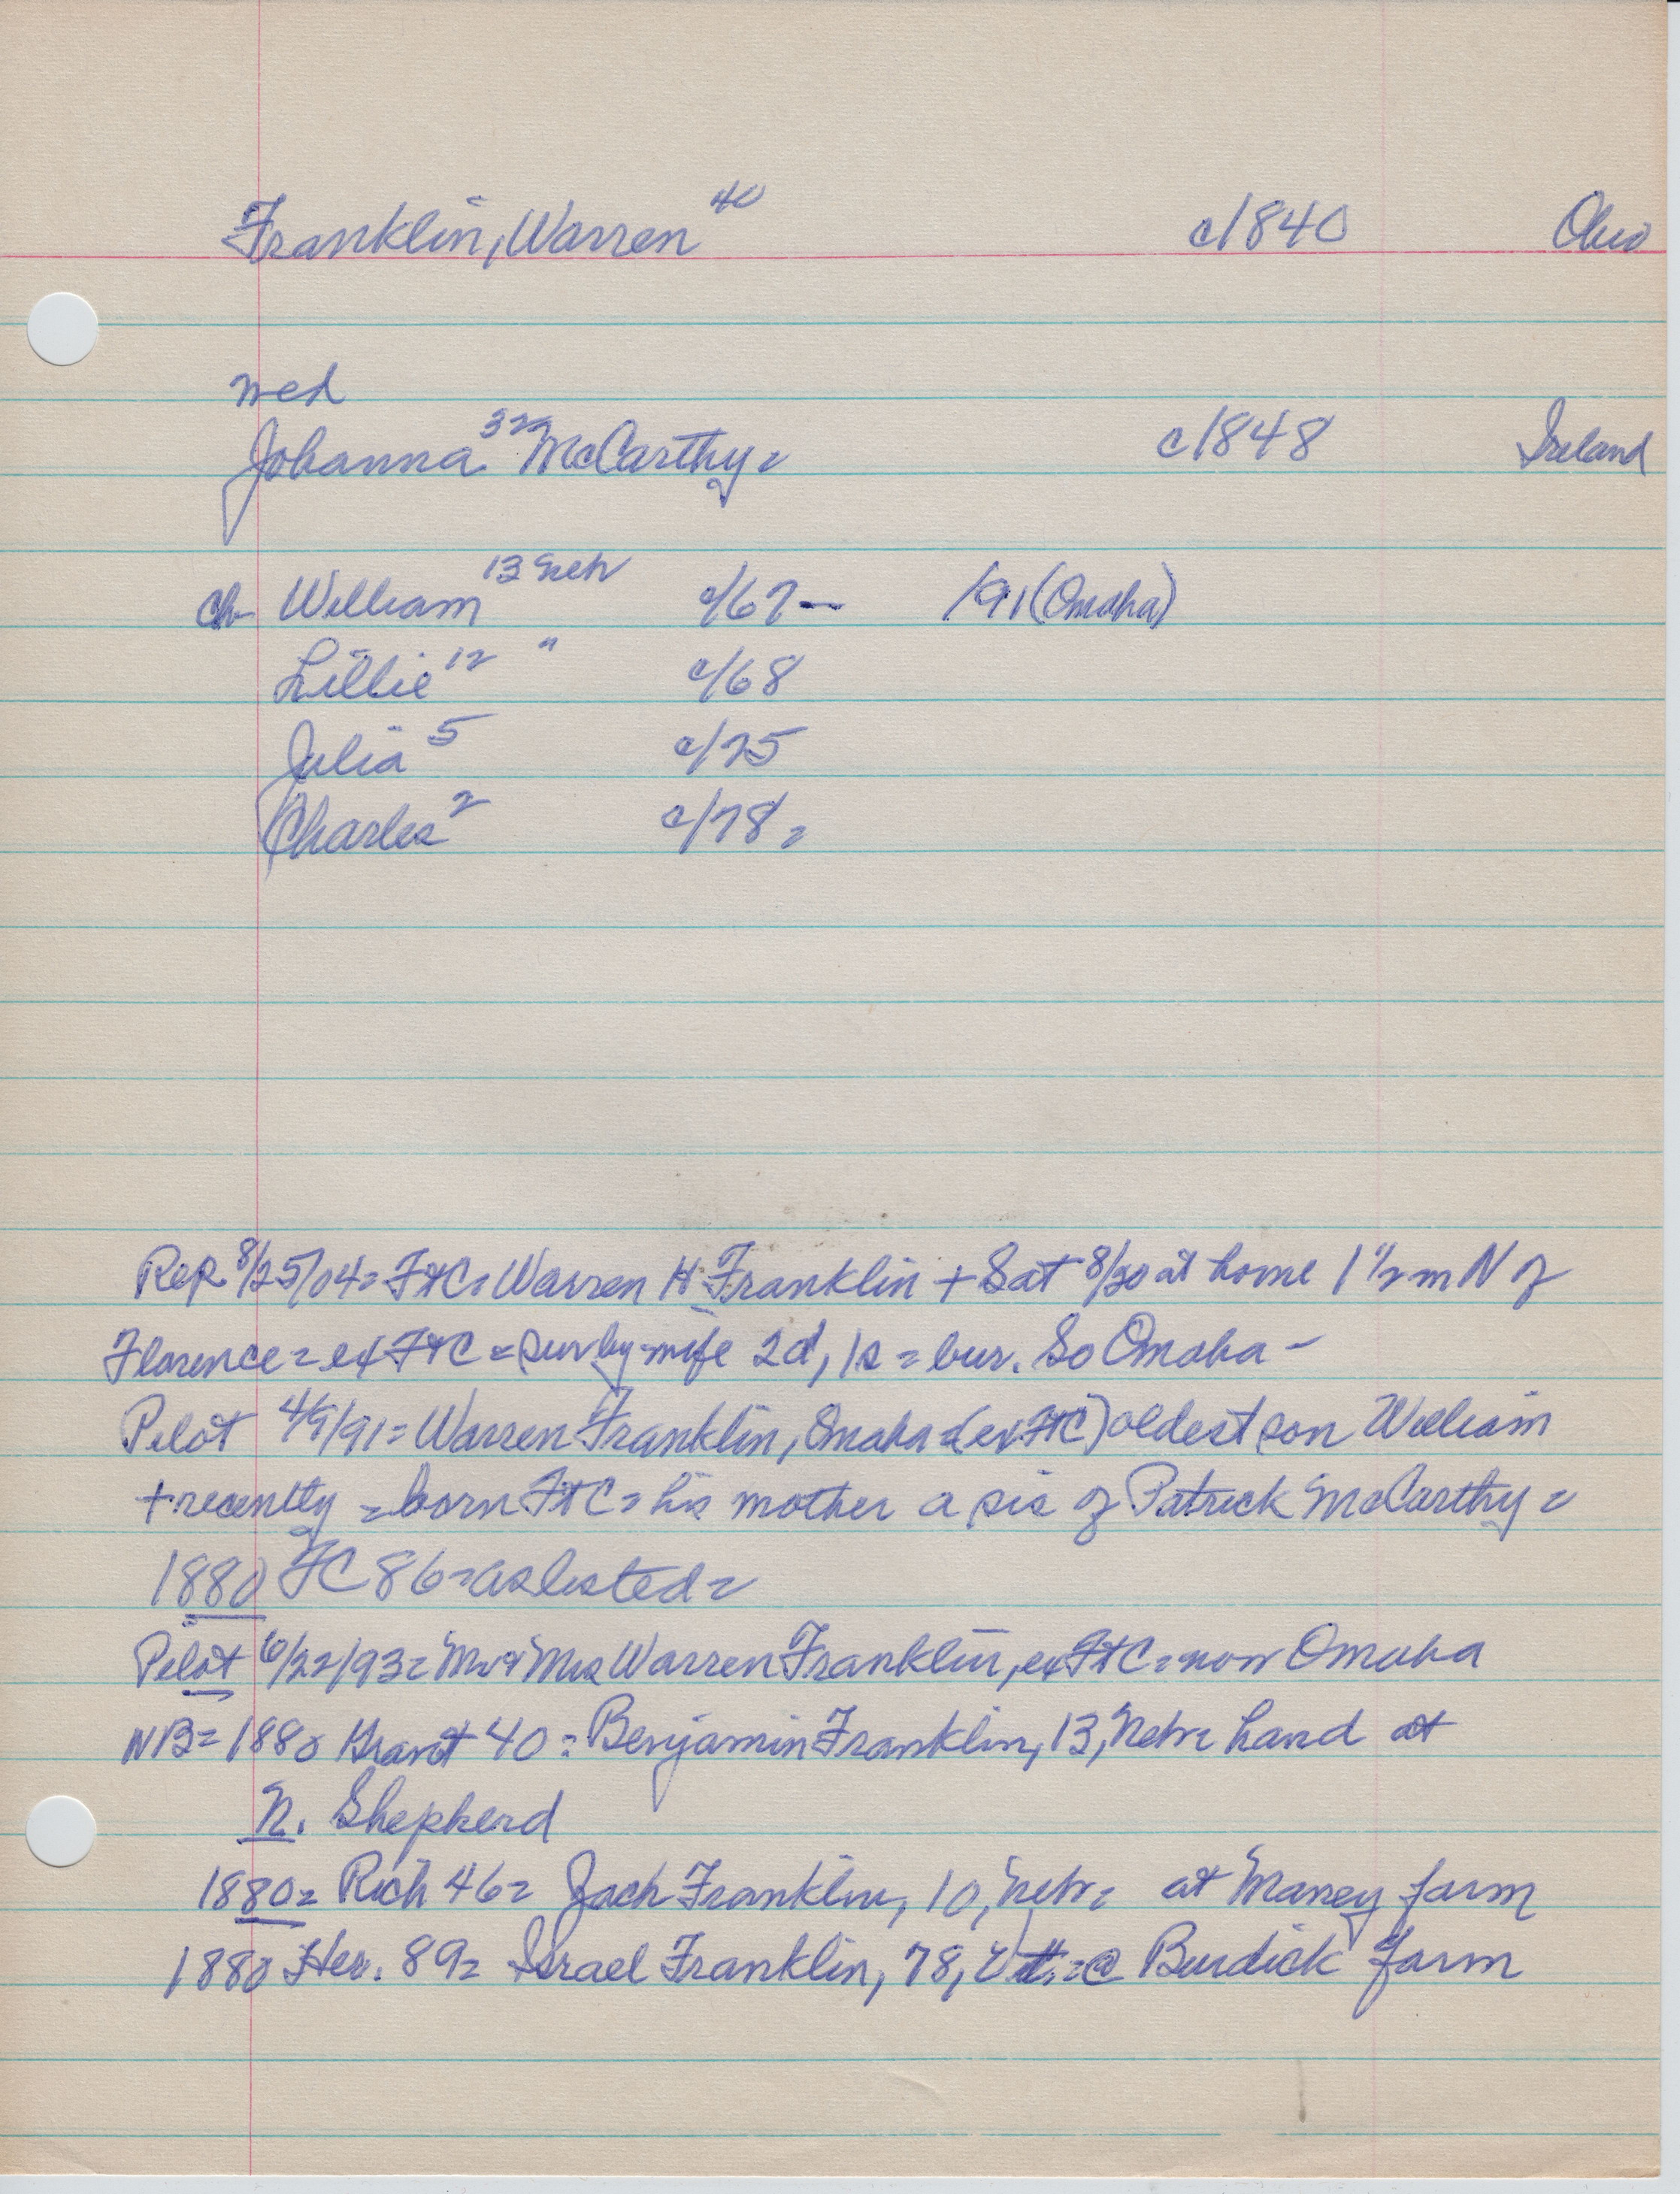 Franklin, Warren 40 c1840 Ohio
wed
Johanna 32 McCarthy = c1848 Ireland
ch William 13 Neb c/67 - /91 (Omaha)
Lillie 12 " c/68
Julia 5 c/75
Charles 2 c/78 =
Rep 8/25/04 = FtC = Warren H Franklin + Sat 8/20 at home 1 1/2 m N of
Florence = ex FtC = surv by wife 2d, 1s = bur. So Omaha -
Pilot 4/9/91 = Warren Franklin, Omaha = (ex FtC) oldest son William
+ recently = born FtC = his mother a sis of Patrick McCarthy =
1880 FC 86 = as listed =
Pilot 6/22/93 = Mr & Mrs Warren Franklin, ex FtC = now Omaha
NB = 1880 Grant 40 = Benjamin Franklin, 13, Neb = hand at
N. Shepherd
1880 = Rich 46 = Jack Franklin, 10, Neb = at Maney farm
1880 Her. 89 = Israel Franklin, 78, Vt. = @ Burdick farm